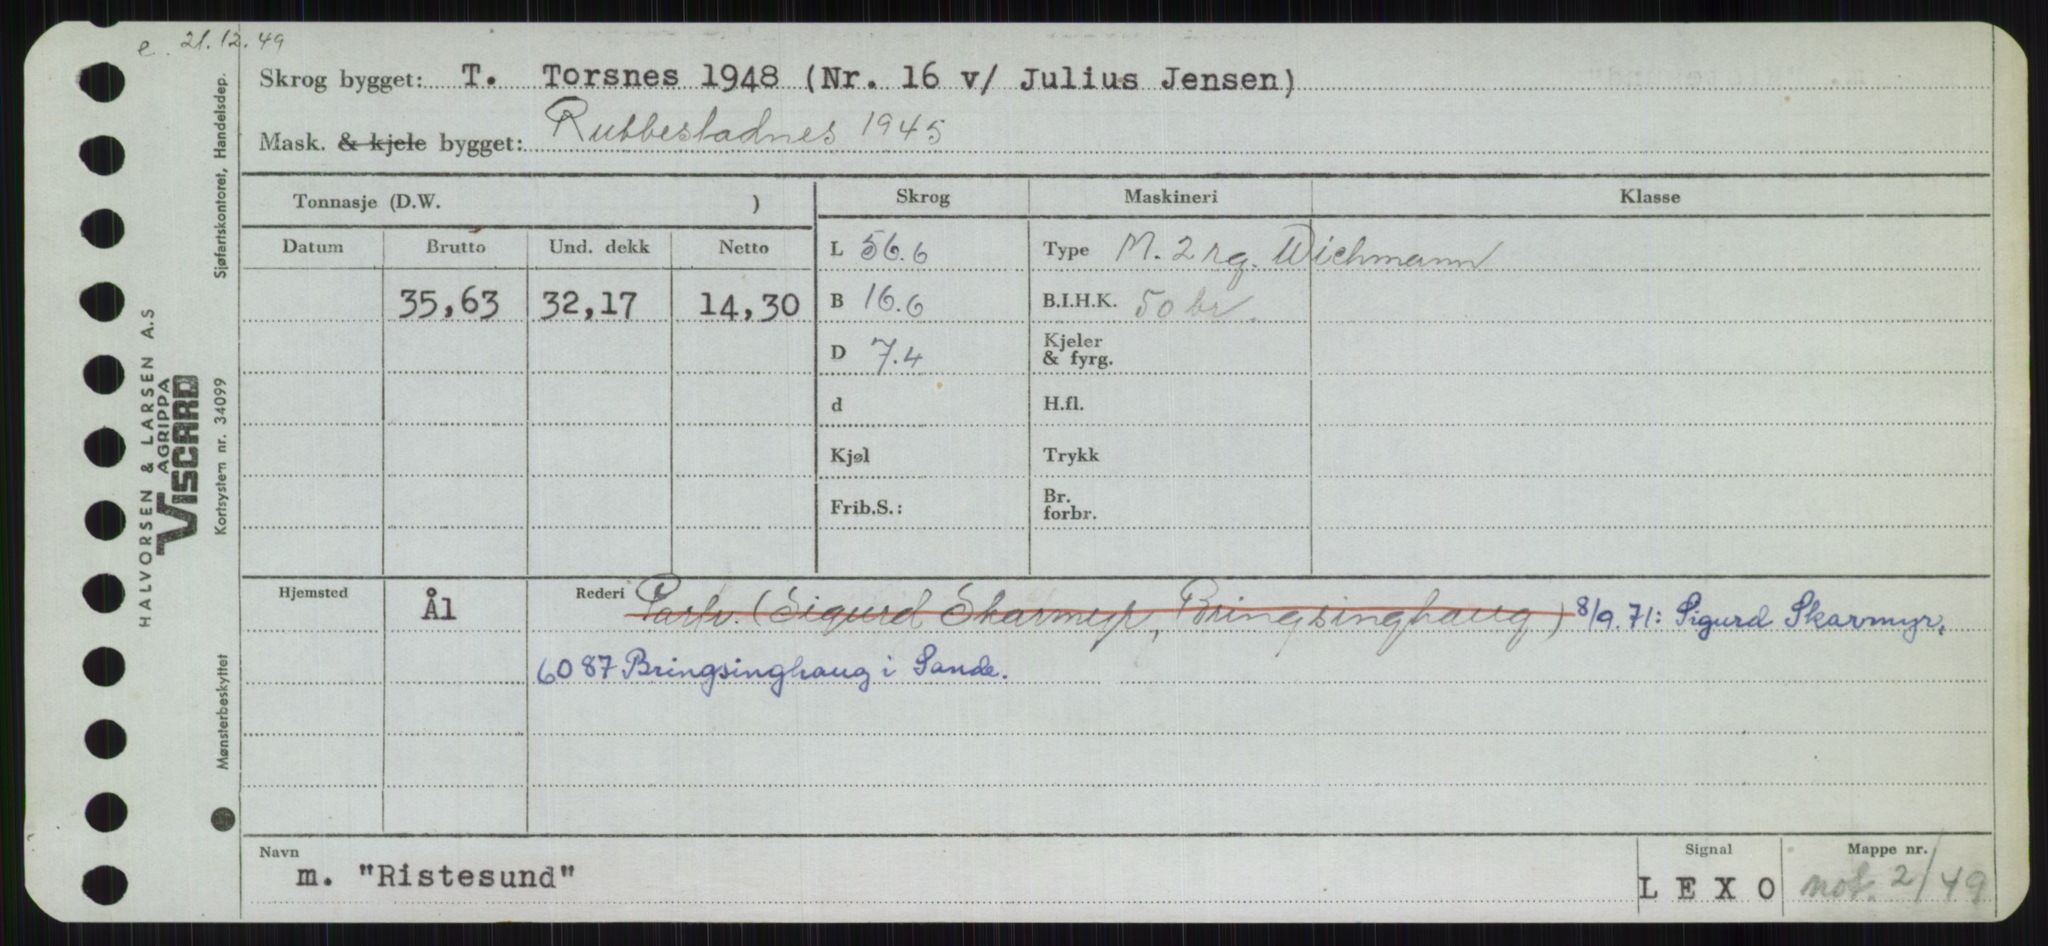 e. 21.12.49
Skrog bygget: T. Torsnes 1948 (Nr. 16 v/ Julius Jensen)
Mask. & kjele bygget: Rubbestadnes 1945
Tonnasje (D.W. )
Skrog
Maskineri
Klasse
Datum
Brutto
Und. dekk
Netto
35,63
32,17
14,30
L 56.6
B 16.6
D 7.4
d
Kjøl
Frib.S.:
Type M. 2 rg. Wichmann
B.I.H.K. 50 br.
Kjeler
& fyrg.
H.fl.
Trykk
Br.
forbr.
Hjemsted
Ål
Rederi Partr. (Sigurd Skarmyr, Bringsinghaug) 8/9.71: Sigurd Skarmyr,
6087 Bringsinghaug i Sande.
Navn
m. "Ristesund"
Signal
LEXO
Mappe nr.
not. 2/49
HALVORSEN & LARSEN A.S
AGRIPPA
VISCARD
Kortsystem nr. 34099
Sjøfartskontoret, Handelsdep.
Mønsterbeskyttet